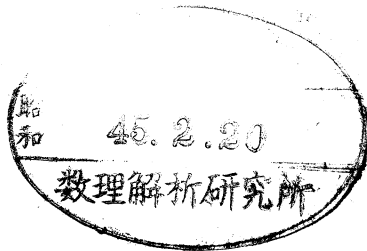 昭和 45.2.20
数理解析研究所